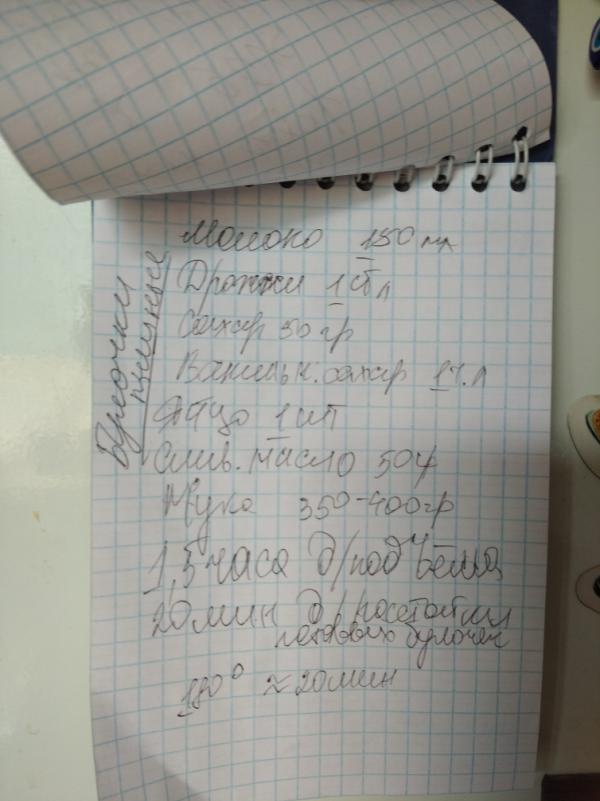 Булочки
пышные
Молоко 150 мл
Дрожжи 1 ст л
Сахар 50 гр
Ванильн. сахар 1 ч. л
Яйцо 1 шт
Слив. масло 50 гр
Мука 350-400 гр
1,5 часа д/подъёма
20 мин д/расстойки
готовых булочек
180° ≈ 20 мин